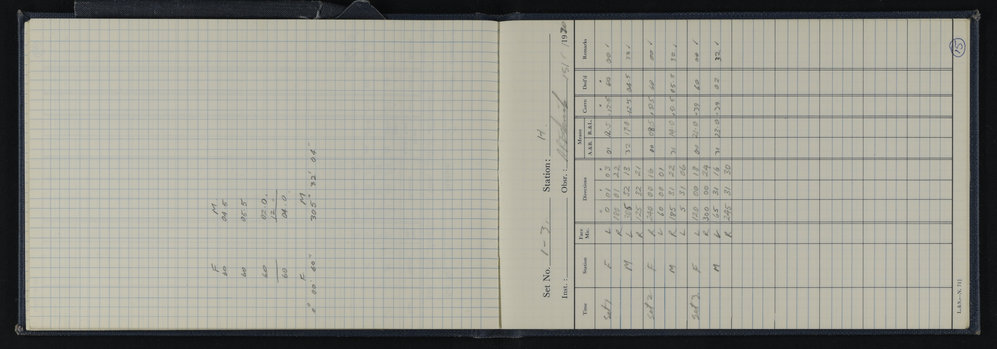 F M
60 04.5
60 05.5
60 02.0.
12.
60 04.0.
F M
0° 00' 60" 305° 32' 04"
15
Set No. 1-3 Station: H.
Inst.: Obsr.: 1970
Time Station Face Mic. Directions Means Corrn. Ded'd Remarks
A.&B. R.&L.
Set 1 F L 0 01 03 01 12.5 -12.5 60 00 ✓
R 180 01 22
M L 305 32 13 32 17.0 -12.5 04.5 32 ✓
R 125 32 21
Set 2 F R 240 00 16 00 08.5 60 00 ✓
L 60 00 01
M R 185 31 22 31 14.0 05.5 32 ✓
L 5 31 06
Set 3 F L 120 00 18 00 21.0 +39 60 00 ✓
R 300 00 24
M L 65 31 16 31 23.0 +39 02 32 ✓
R 245 31 30
L.&S.—N. 711